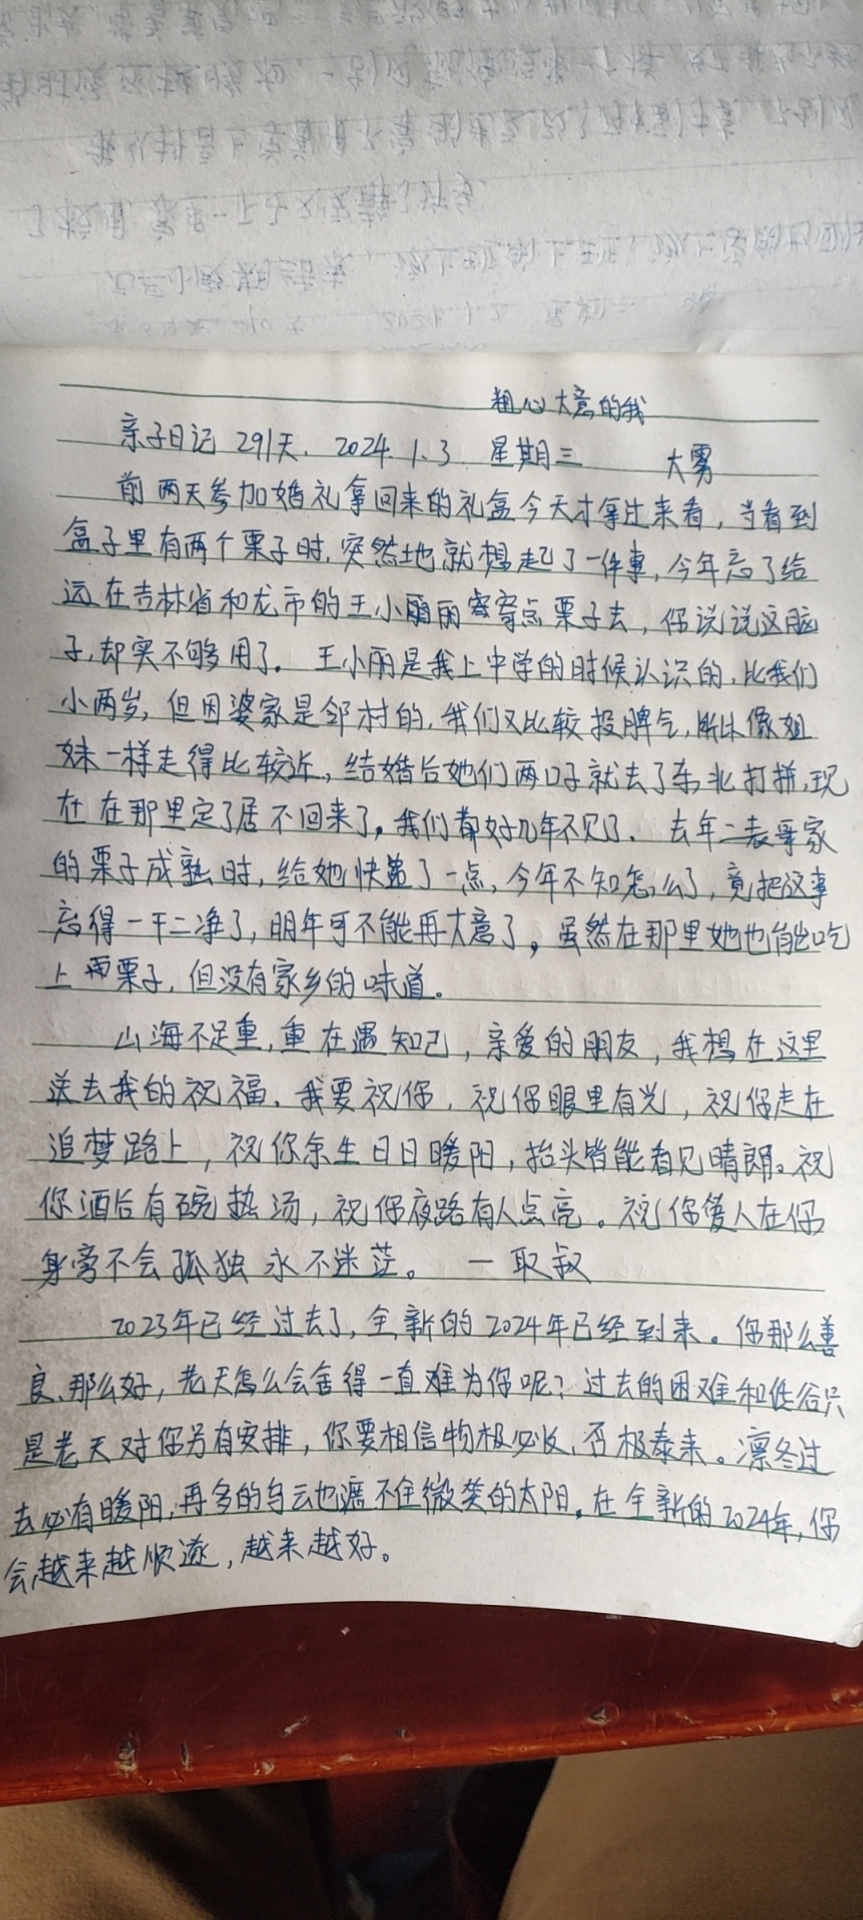 粗心大意的我
亲子日记 291天. 2024.1.3 星期三 大雾
前两天参加婚礼拿回来的礼盒今天才拿过来看，当看到
盒子里有两个栗子时，突然地就想起了一件事，今年忘了给
远在吉林省和龙市的王小丽丽寄寄点栗子去，你说说这脑
子，却实不够用了。王小丽是我上中学的时候认识的，比我们
小两岁，但因婆家是邻村的，我们又比较投脾气，所以像姐
妹一样走得比较近，结婚后她们两口子就去了东北打拼，现
在在那里定了居不回来了，我们都好几年不见了．去年二表哥家
的栗子成熟时，给她快递了一点，今年不知怎么了，竟把这事
忘得一干二净了，明年可不能再大意了，虽然在那里她也能吃
上栗子，但没有家乡的味道。
山海不足重，重在遇知己，亲爱的朋友，我想在这里
送去我的祝福．我要祝你，祝你眼里有光，祝你走在
追梦路上，祝你余生日日暖阳，抬头皆能看见晴朗。祝
你酒后有碗热汤，祝你夜路有人点亮。祝你爱人在你
身旁不会孤独永不迷茫。 — 取叔
2023年已经过去了，全新的2024年已经到来。你那么善
良、那么好，老天怎么会舍得一直难为你呢？过去的困难和低谷只
是老天对你另有安排，你要相信物极必反，否极泰来。凛冬过
去必有暖阳，再多的乌云也遮不住微笑的太阳，在全新的2024年，你
会越来越顺遂，越来越好。